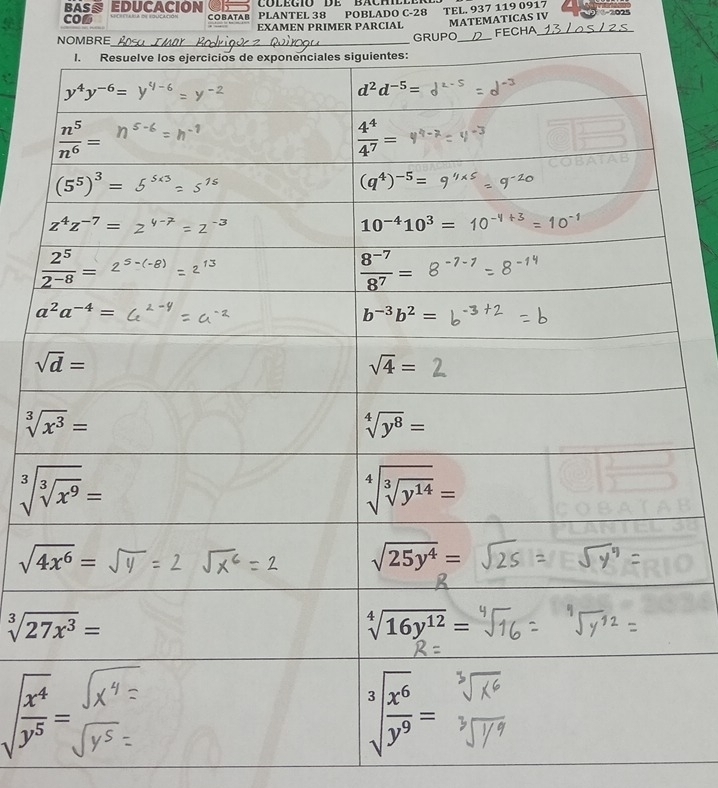 EDUCACIÓN COBATAB
COLEGIO DE BACHILLERES
PLANTEL 38 POBLADO C-28 TEL. 937 119 0917
EXAMEN PRIMER PARCIAL MATEMATICAS IV
NOMBRE Rosa Imar Rodriguez Quiroga GRUPO D FECHA 13/05/25
I. Resuelve los ejercicios de exponenciales siguientes:
y⁴y⁻⁶ = y⁴⁻⁶ = y⁻² d²d⁻⁵ = d²⁻⁵ = d⁻³
n⁵/n⁶ = n⁵⁻⁶ = n⁻¹ 4⁴/4⁷ = 4⁴⁻⁷ = 4⁻³
(5⁵)³ = 5⁵ˣ³ = 5¹⁵ (q⁴)⁻⁵ = q⁴ˣ⁵ = q⁻²⁰
z⁴z⁻⁷ = z⁴⁻⁷ = z⁻³ 10⁻⁴10³ = 10⁻⁴⁺³ = 10⁻¹
2⁵/2⁻⁸ = 2⁵⁻⁽⁻⁸⁾ = 2¹³ 8⁻⁷/8⁷ = 8⁻⁷⁻⁷ = 8⁻¹⁴
a²a⁻⁴ = a²⁻⁴ = a⁻² b⁻³b² = b⁻³⁺² = b
√d = √4 = 2
∛x³ = ∜y⁸ =
∛∛x⁹ = ∜∛y¹⁴ =
√4x⁶ = √4 = 2 √x⁶ = 2 √25y⁴ = √25 = √y⁴ =
R
∛27x³ = ∜16y¹² = ∜16 = ∜y¹² =
R =
√(x⁴/y⁵) = √x⁴ = √y⁵ = ∛(x⁶/y⁹) = ∛x⁶ ∛y⁹